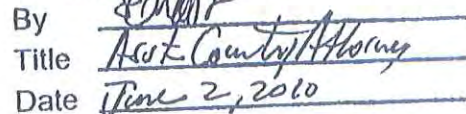 By
Title Asst County Attorney
Date June 2, 2010